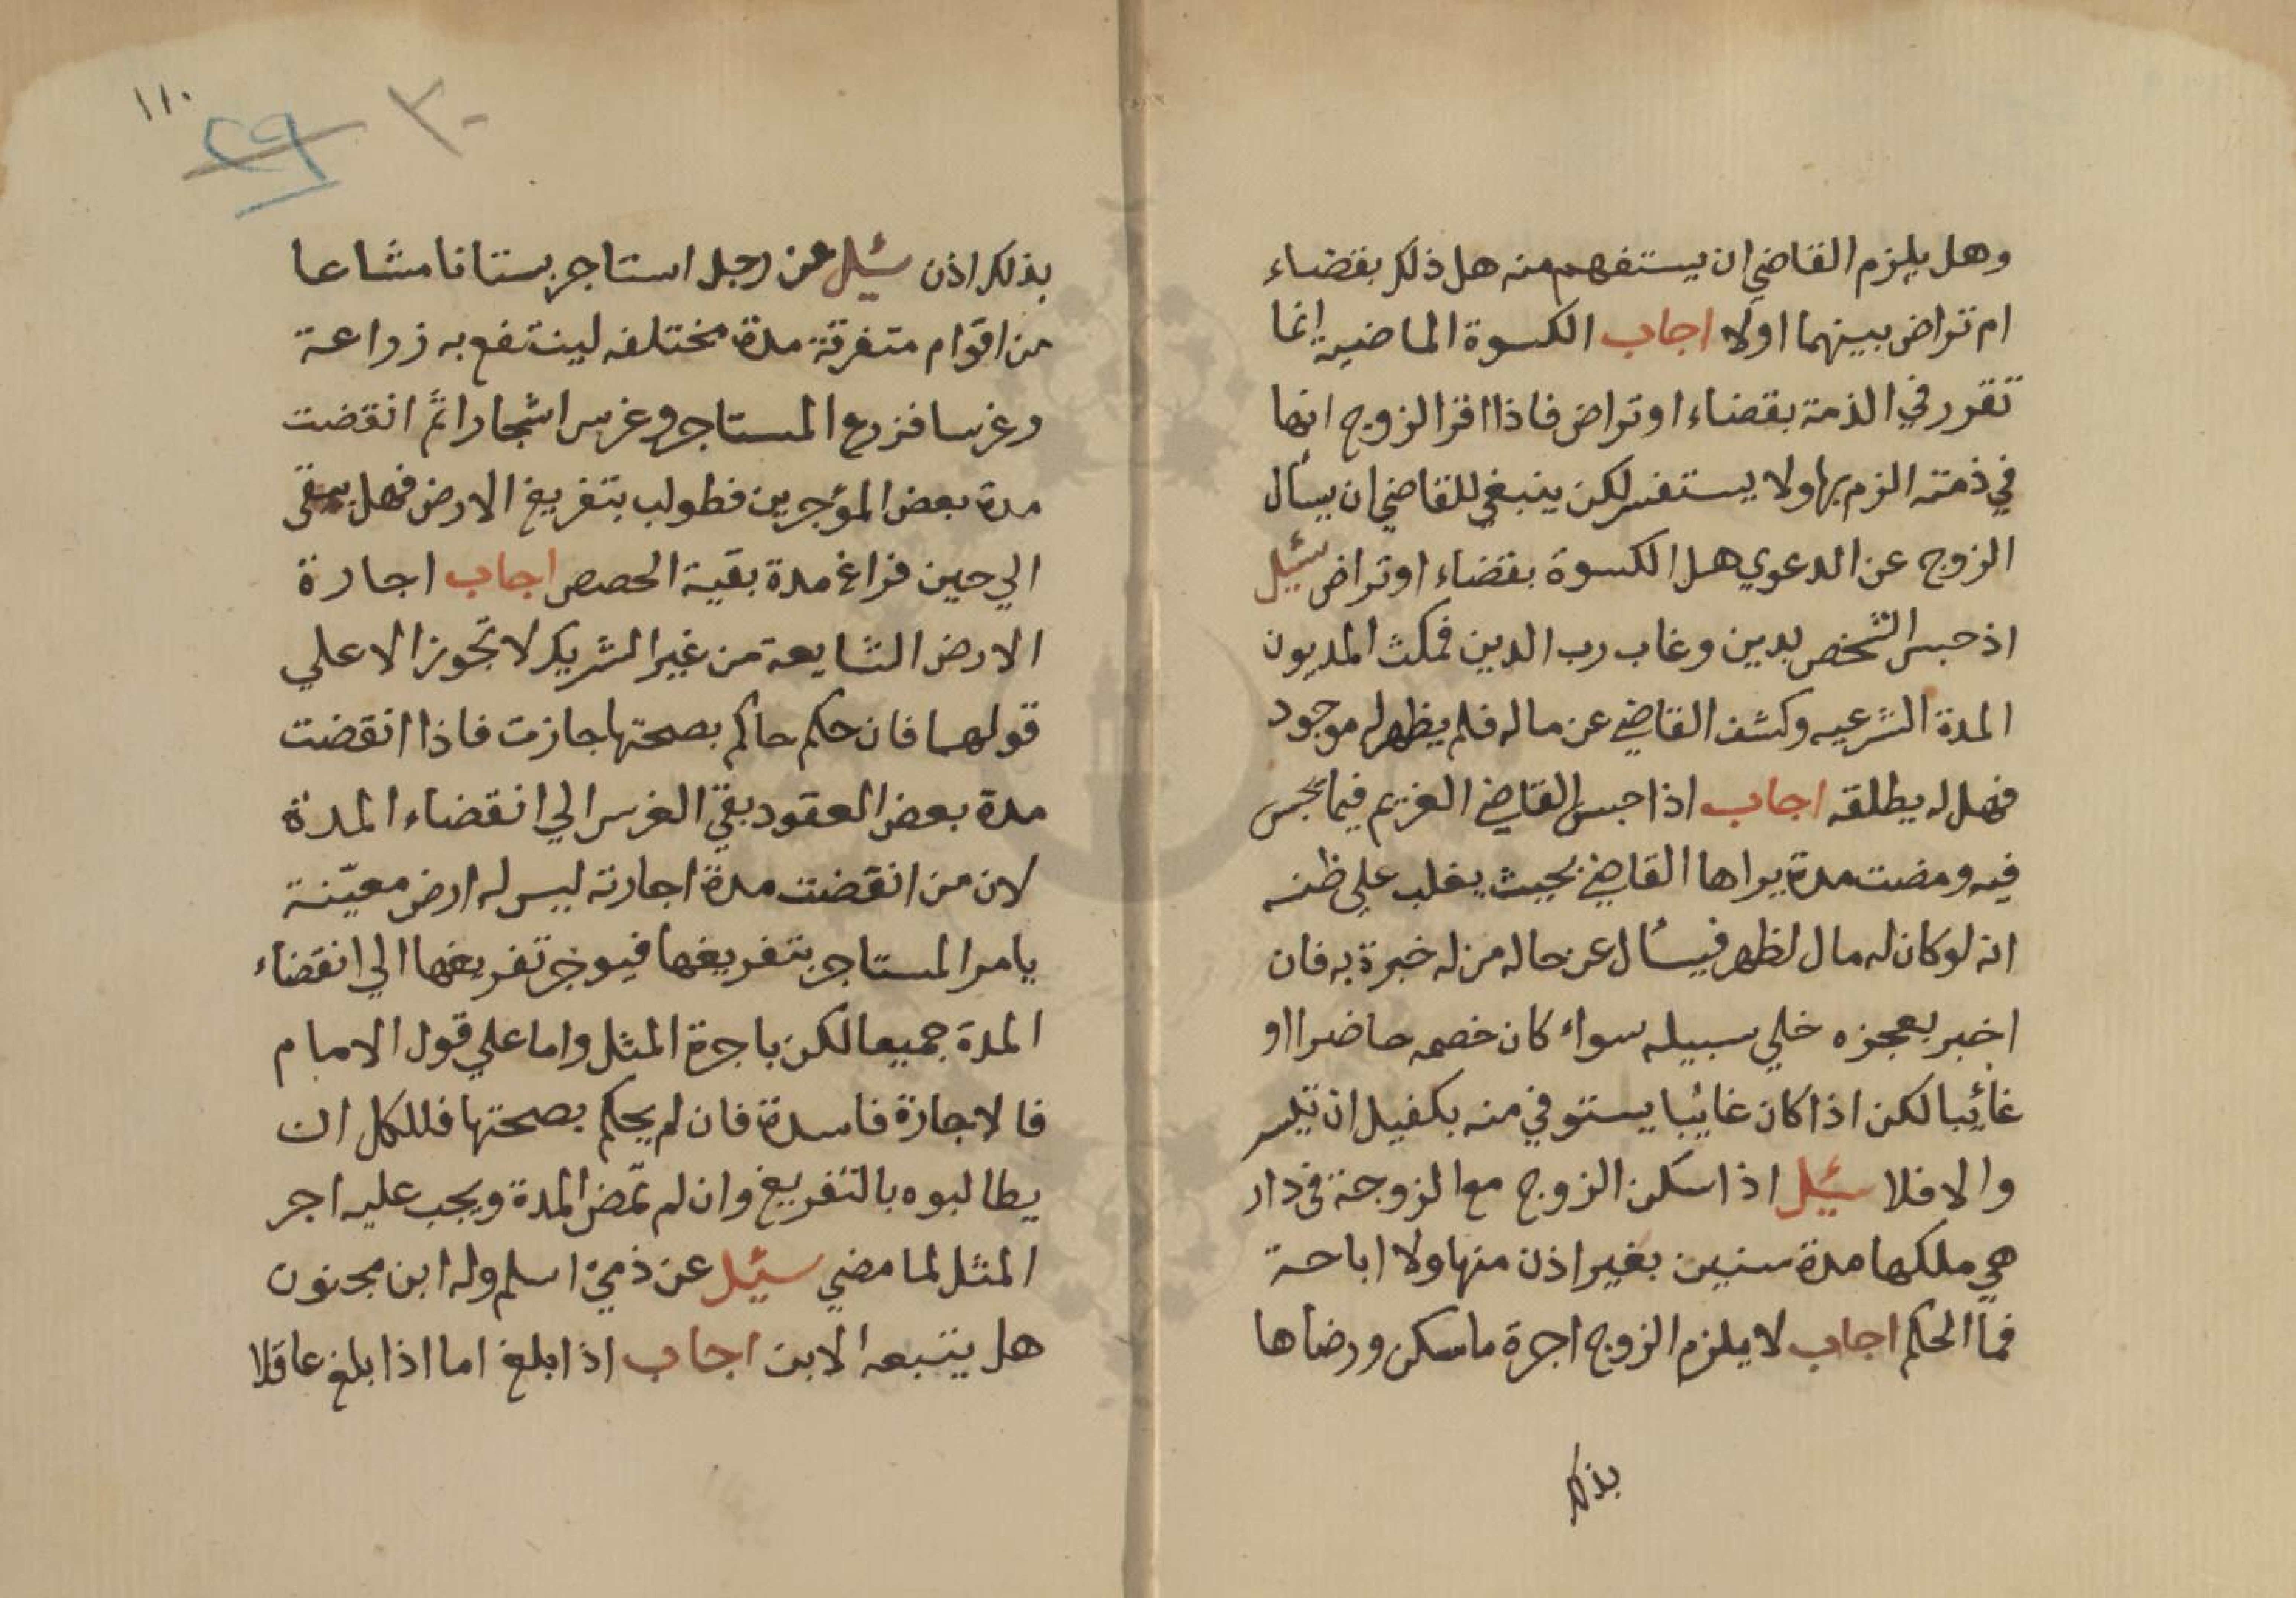 وهل يلزم القاضي ان يستفهم منه هل ذلك بقضاء
ام تراض بينهما اولا اجاب الكسوة الماضية انما
تقرر في الذمة بقضاء او تراض فاذا اقر الزوج انها
في ذمته الزم بها ولا يستفسر لكن ينبغي للقاضي ان يسأل
الزوج عن الدعوي هل الكسوة بقضاء او تراض سئيل
اذ حبس الشخص بدين وغاب رب الدين فمكث المديون
المدة الشرعيه وكشف القاضي عن ماله فلم يظهر له موجود
فهل له يطلقه اجاب اذا حبس القاضي الغريم فيما يحبس
فيه ومضت مدة يراها القاضي بحيث يغلب علي ظنه
انه لو كان له مال لظهر فيسأل عن حاله من له خبرة به فان
اخبر بعجزه خلي سبيله سواء كان خصمه حاضرا او
غائبا لكن اذا كان غائبا يستوفي منه بكفيل ان تيسر
والا فلا سئيل اذا سكن الزوج مع الزوجة في دار
هي ملكها مدة سنين بغير اذن منها ولا اباحة
فما الحكم اجاب لا يلزم الزوج اجرة ما سكن ورضاها
بذلك
١١٠
٢٩ ٣٠
بذلك اذن سئيل عن رجل استاجر بستانا مشاعا
من اقوام متفرقة مدة مختلفه لينتفع به زراعة
وغرسا فزرع المستاجر وغرس اشجارا ثم انقضت
مدة بعض المؤجرين فطولب بتفريغ الارض فهل يبقي
الي حين فراغ مدة بقية الحصص اجاب اجارة
الارض الشايعة من غير الشريك لا تجوز الا علي
قولهما فان حكم حاكم بصحتها جازت فاذا انقضت
مدة بعض العقود بقي الغرس الي انقضاء المدة
لان من انقضت مدة اجارته ليس له ارض معينة
يامر المستاجر بتفريغها فيوخر تفريغها الي انقضاء
المدة جميعا لكن باجرة المثل واما علي قول الامام
فالاجارة فاسدة فان لم يحكم بصحتها فللكل ان
يطالبوه بالتفريغ وان لم تمض المدة ويجب عليه اجر
المثل لما مضي سئيل عن ذمي اسلم وله ابن مجنون
هل يتبعه الابن اجاب اذا بلغ اما اذا بلغ عاقلا